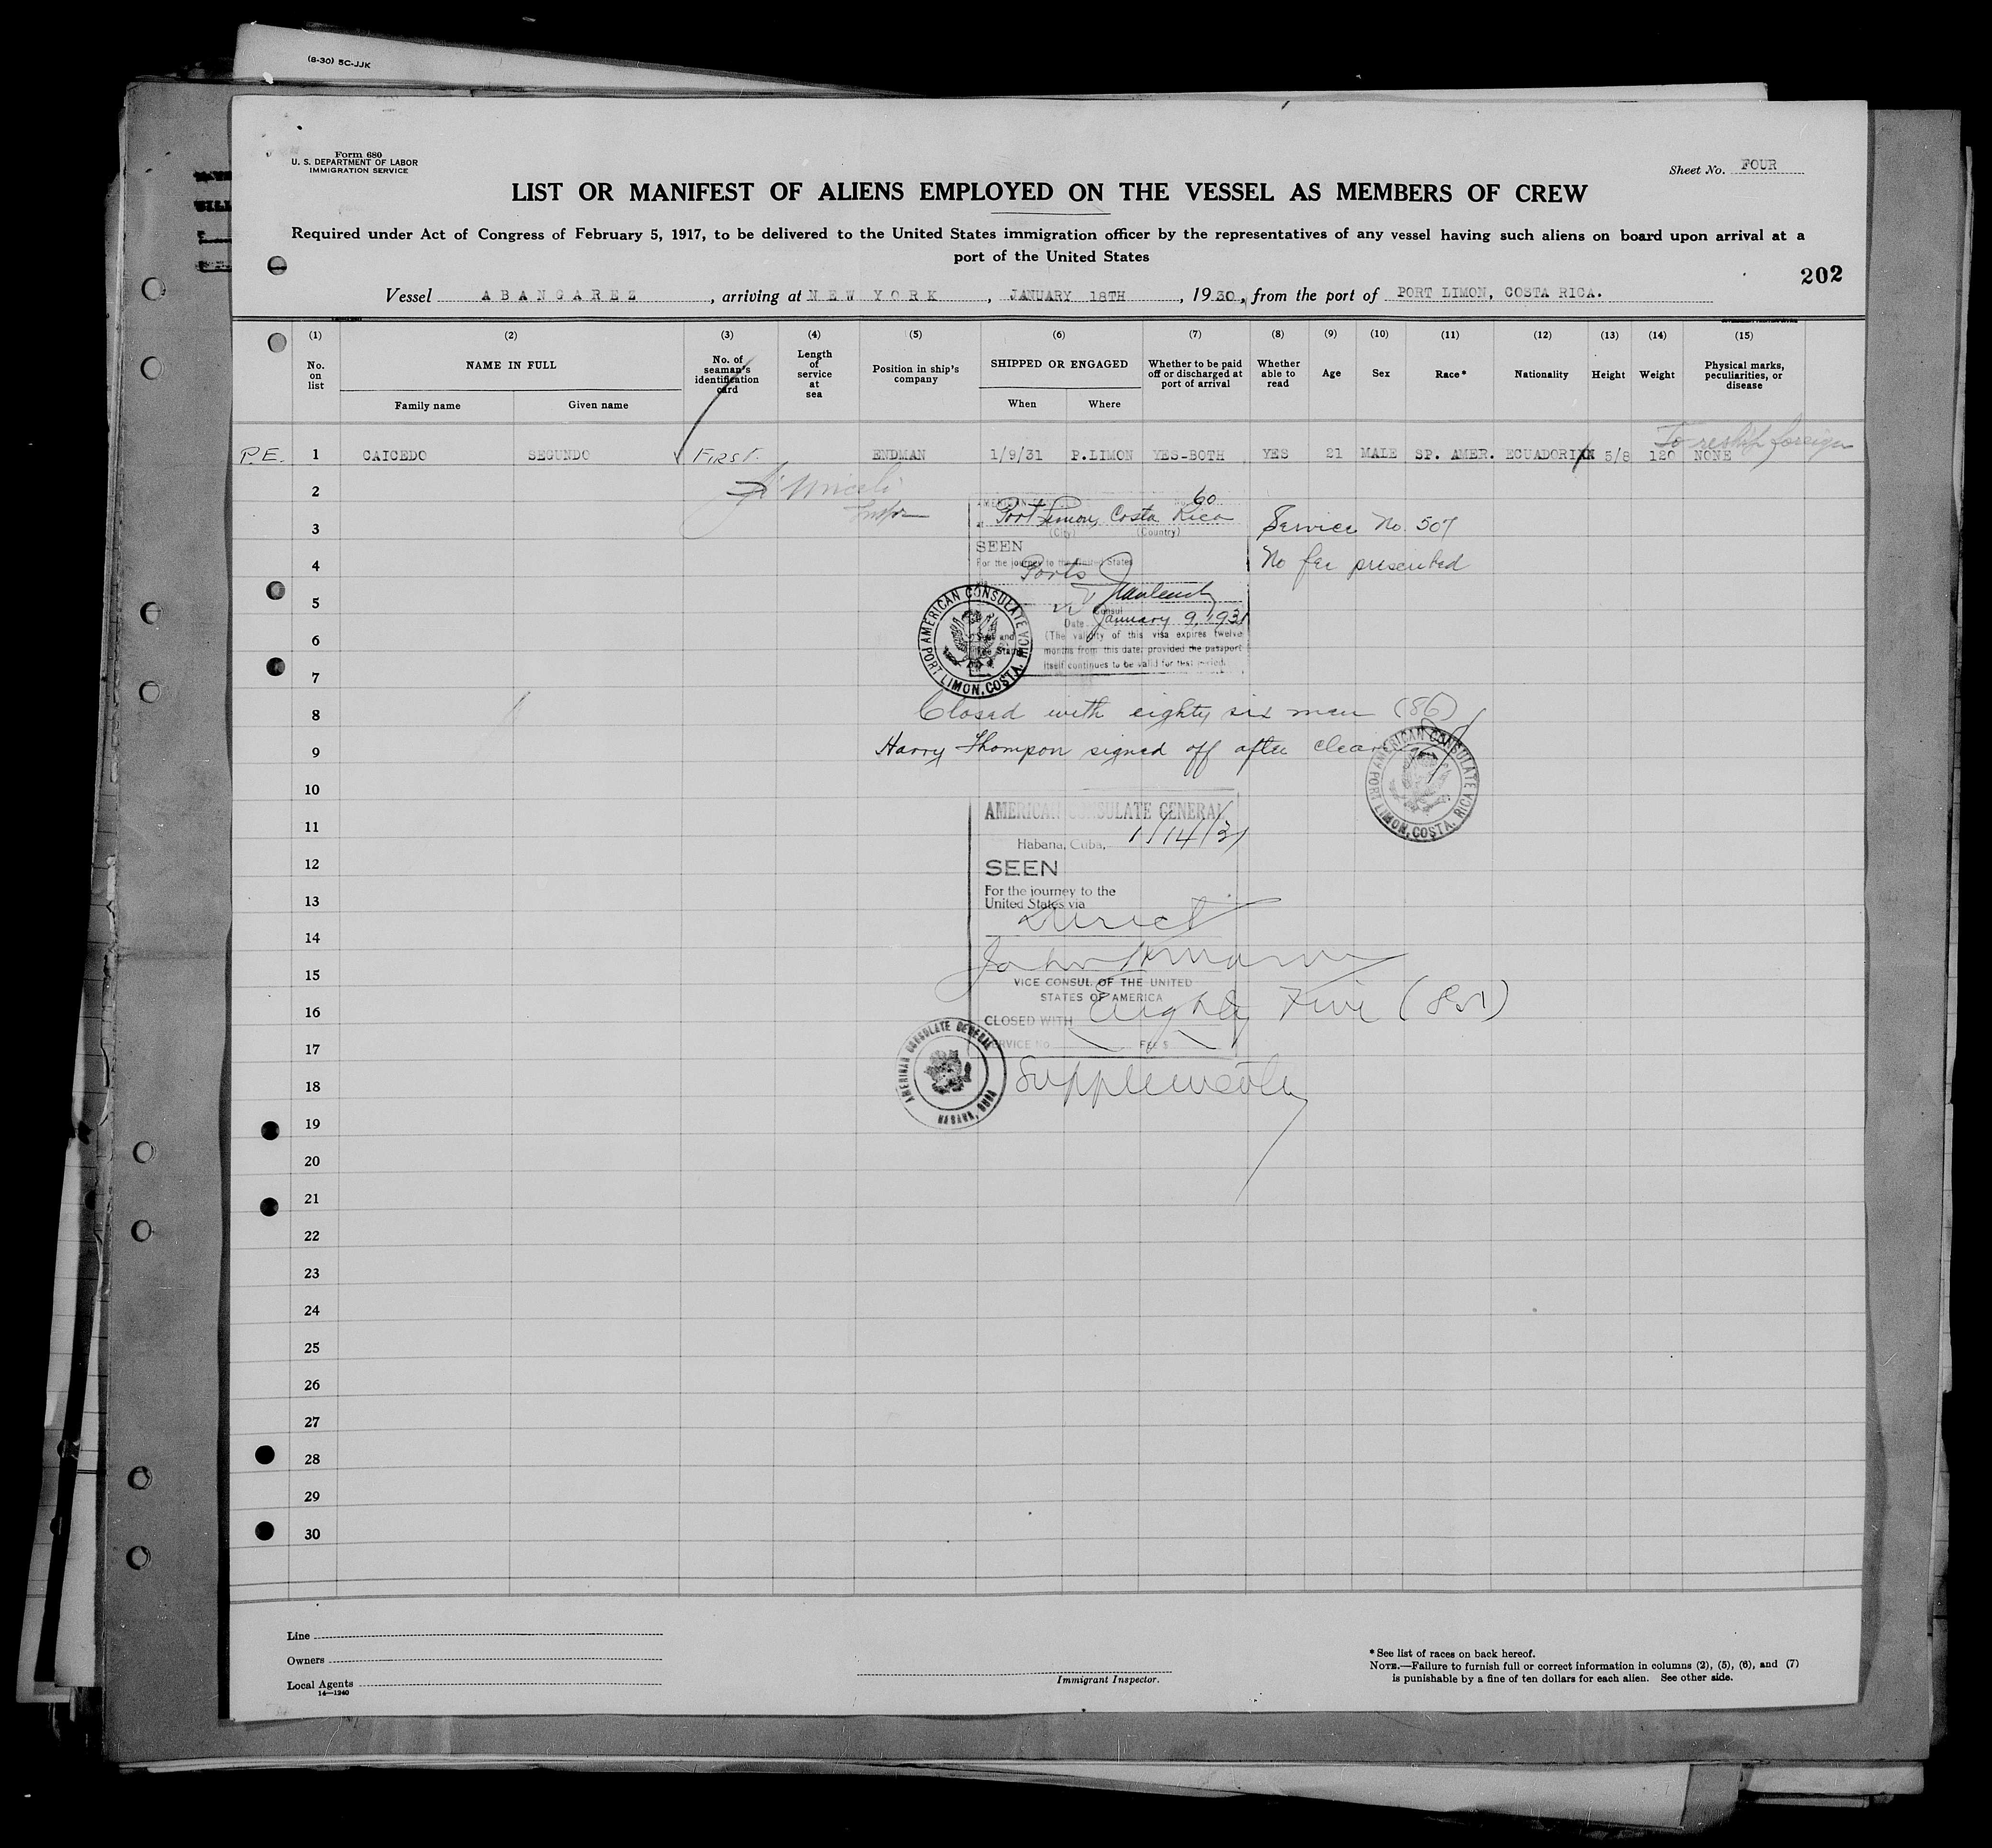 (8-30) 5C-JJK
Form 680
U. S. DEPARTMENT OF LABOR
IMMIGRATION SERVICE
Sheet No. FOUR
LIST OR MANIFEST OF ALIENS EMPLOYED ON THE VESSEL AS MEMBERS OF CREW
Required under Act of Congress of February 5, 1917, to be delivered to the United States immigration officer by the representatives of any vessel having such aliens on board upon arrival at a
port of the United States
202
Vessel ABANGAREZ, arriving at NEW YORK, JANUARY 18TH, 1930, from the port of PORT LIMON, COSTA RICA.
(1) (2) (3) (4) (5) (6) (7) (8) (9) (10) (11) (12) (13) (14) (15)
No. on list NAME IN FULL Family name Given name No. of seaman's identification card Length of service at sea Position in ship's company SHIPPED OR ENGAGED When Where Whether to be paid off or discharged at port of arrival Whether able to read Age Sex Race* Nationality Height Weight Physical marks, peculiarities, or disease
To reship foreign
P.E. 1 CAICEDO SEGUNDO FIRST. ENDMAN 1/9/31 P.LIMON YES-BOTH YES 21 MALE SP. AMER. ECUADORIAN 5/8 120 NONE
2
No. 60
3 Port Limon, Costa Rica Service No. 507
(City) (Country)
SEEN
4 For the journey to the United States No fee prescribed
Ports
5
Consul
Date January 9, 1931
6 (The validity of this visa expires twelve
months from this date, provided the passport
7 itself continues to be valid for that period.
AMERICAN CONSULATE PORT LIMON, COSTA RICA
8 Closed with eighty six men (86)
9 Harry Thompson signed off after clearing
AMERICAN CONSULATE PORT LIMON, COSTA RICA
10
AMERICAN CONSULATE GENERAL
11 Habana, Cuba, 1/14/31
12 SEEN
For the journey to the
13 United States via
Direct
14
15
VICE CONSUL OF THE UNITED
STATES OF AMERICA
16 CLOSED WITH Eighty Five (85)
17 SERVICE No. FEE $
AMERICAN CONSULATE GENERAL HABANA, CUBA
18
19
20
21
22
23
24
25
26
27
28
29
30
Line
Owners
Local Agents
14—1240
Immigrant Inspector.
* See list of races on back hereof.
NOTE.—Failure to furnish full or correct information in columns (2), (5), (6), and (7)
is punishable by a fine of ten dollars for each alien. See other side.